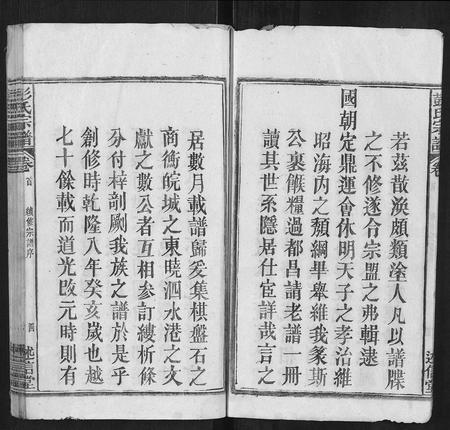 彭氏宗譜
若茲散渙頗類塗人凡以譜牒
之不修遂令宗盟之弗輯逮
國朝定鼎運會休明天子之孝治維
昭海内之頹綱畢舉維我篆斯
公裹餱糧過都昌請老譜一冊
讀其世系隱居仕宦詳哉言之
居數月載譜歸爰集棋盤石之
商衡皖城之東曉泗水港之文
獻之數公者互相參訂縷析條
分付梓剞劂我族之譜於是乎
創修時乾隆八年癸亥歲也越
七十餘載而道光改元時則有
彭氏宗譜 卷 首 續修宗譜序 四 述信堂